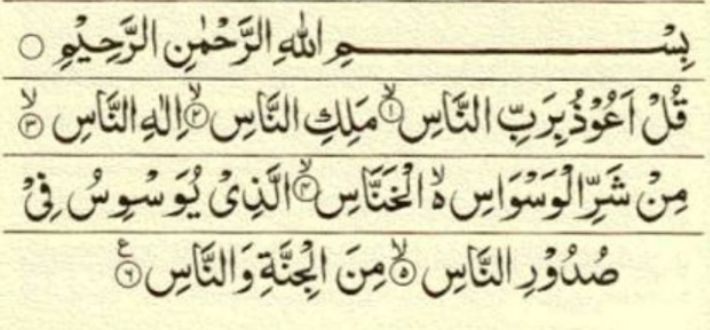 بِسْــــــــــــمِ اللهِ الرَّحْمٰنِ الرَّحِيْمِ ○
قُلْ اَعُوْذُ بِرَبِّ النَّاسِ ۙ﴿۱﴾ مَلِكِ النَّاسِ ۙ﴿۲﴾ اِلٰهِ النَّاسِ ۙ﴿۳﴾
مِنْ شَرِّ الْوَسْوَاسِ ۙ۬ الْخَنَّاسِ ۙ﴿۴﴾ الَّذِیْ یُوَسْوِسُ فِیْ
صُدُوْرِ النَّاسِ ۙ﴿۵﴾ مِنَ الْجِنَّةِ وَالنَّاسِ ﴿۶﴾ ع